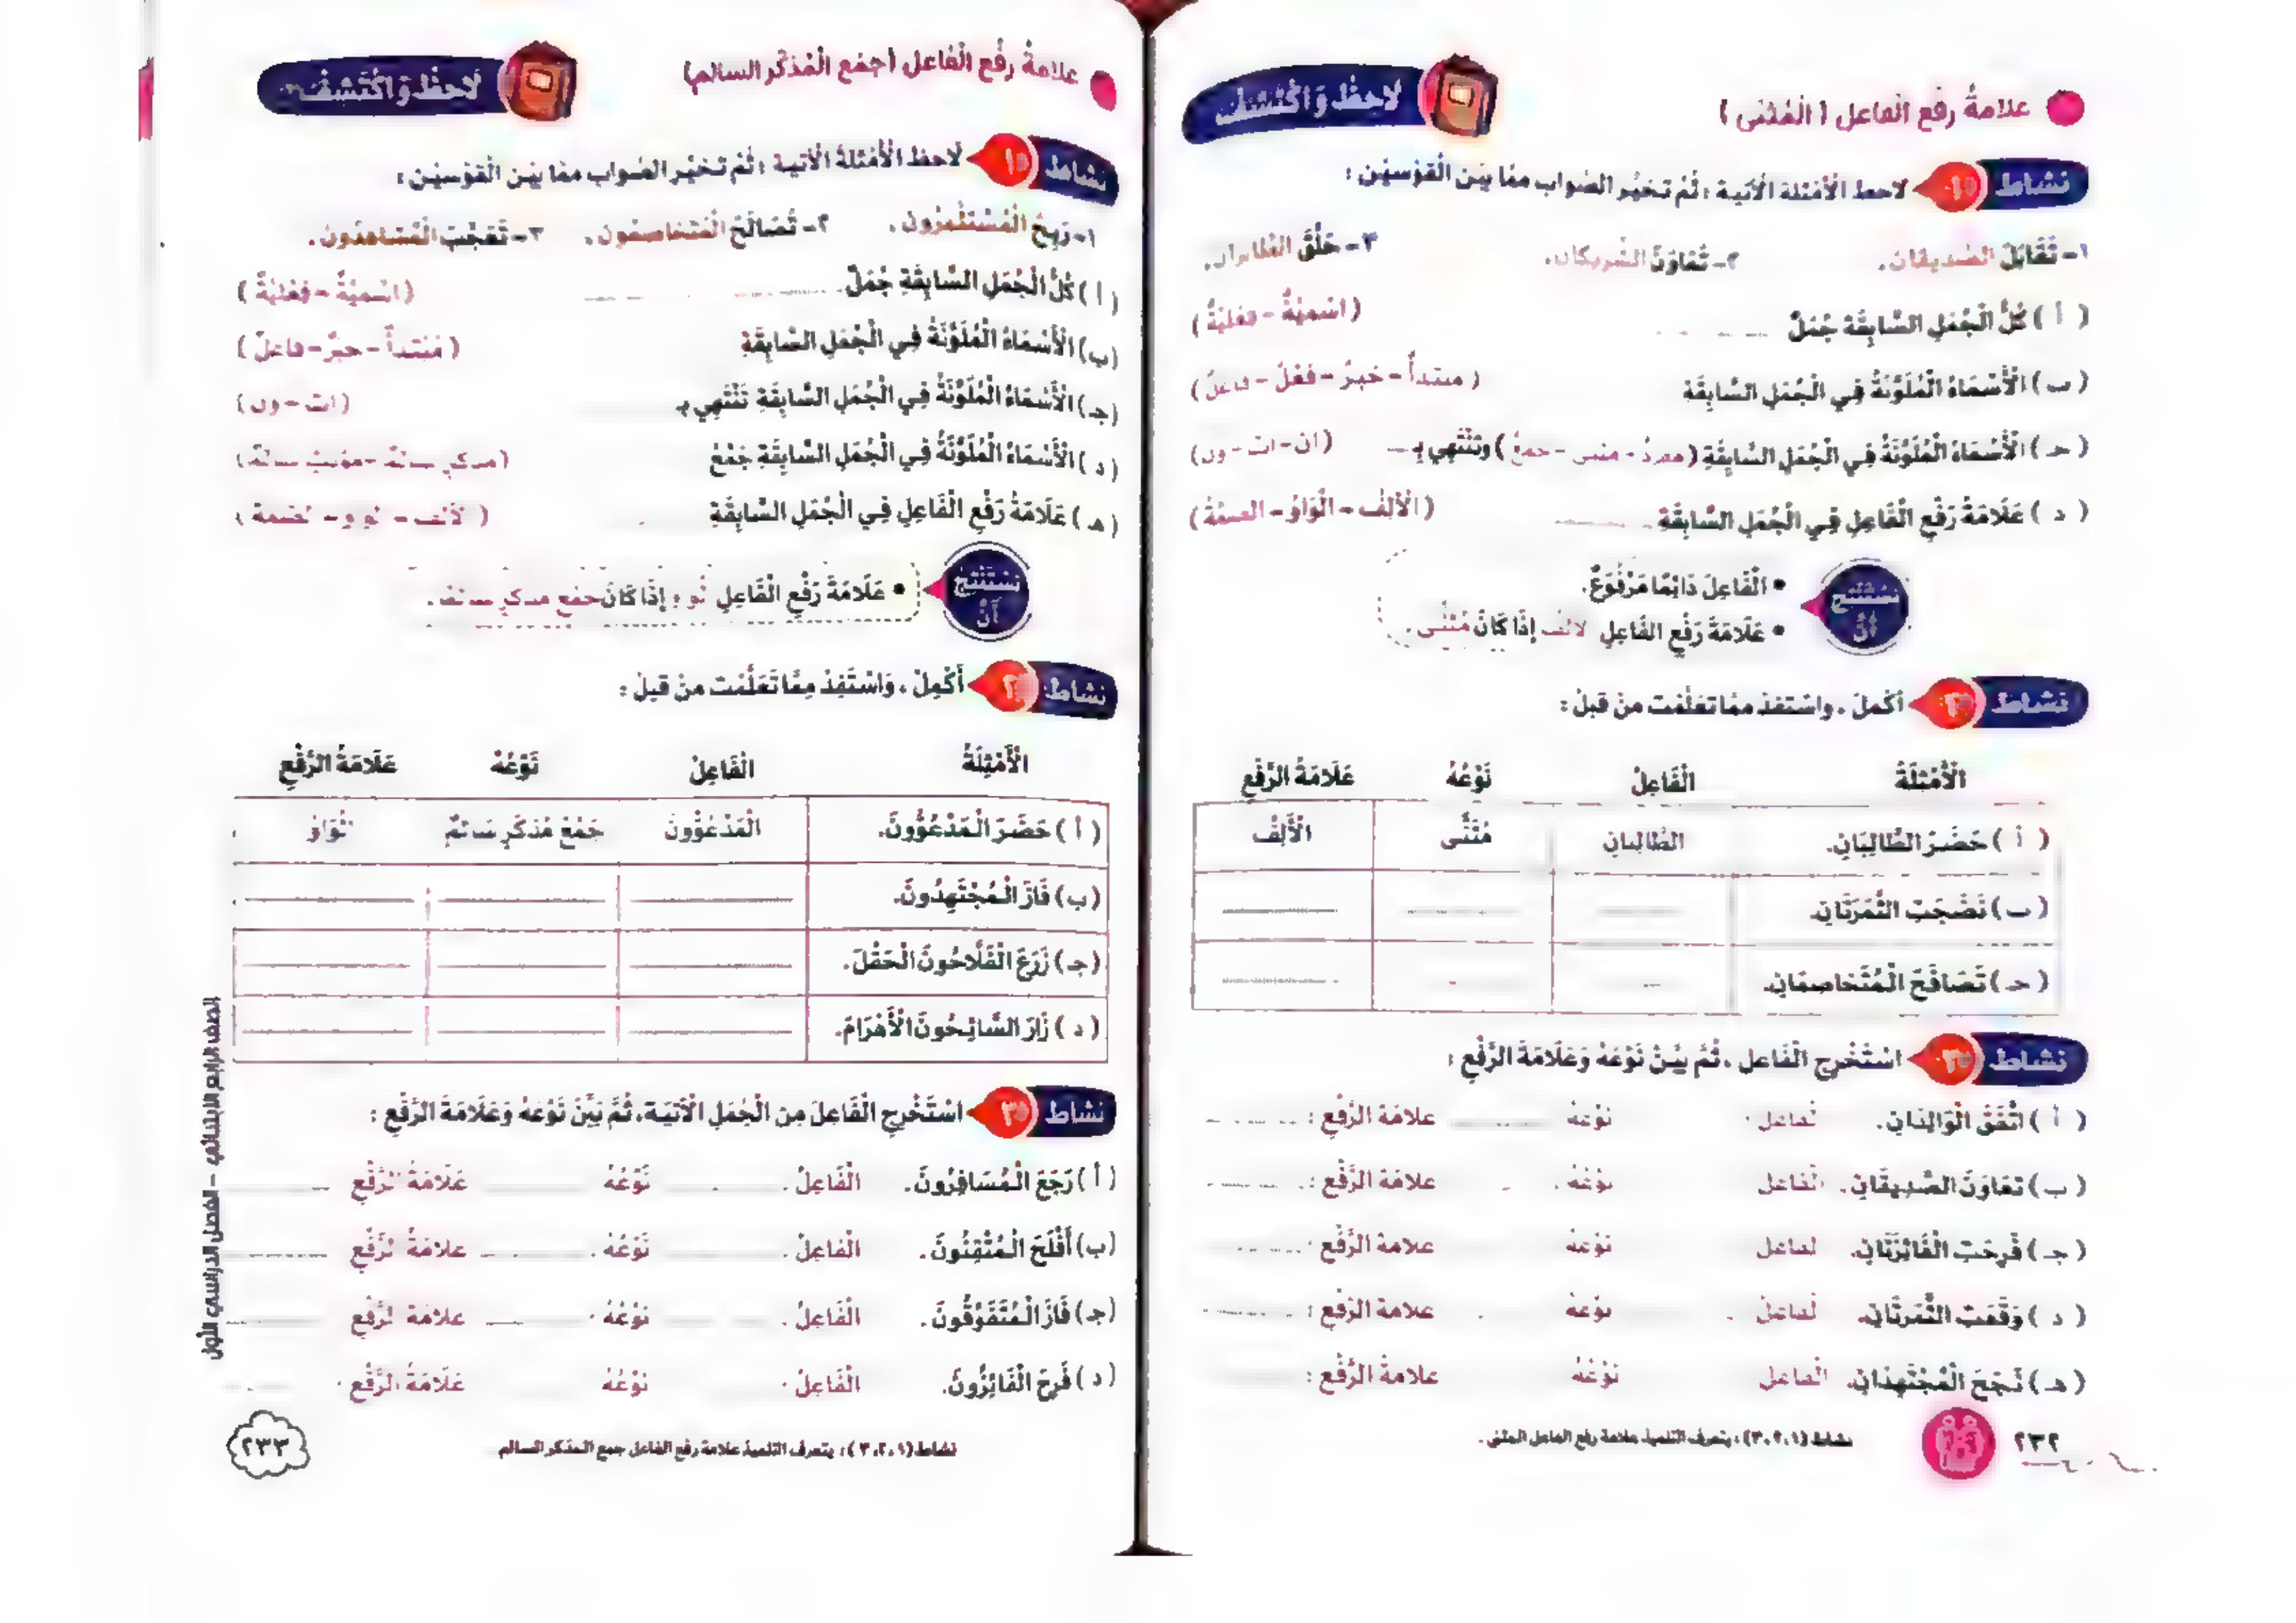 علامةُ رفْعِ الفاعل ( الْمُثنَّى )
لاحظْ وَاكْتشفْ
نشاط ١ لاحظ الأمْثلة الآتية ؛ ثُمّ تخيَّر الصَّواب ممّا بيْن الْقوْسيْن :
١- تَقَابَلَ الصَّديقان. ٢- تَعَاوَنَ الشَّريكان. ٣- حَلَّقَ الطَّائران.
( أ ) كُلُّ الْجُمَلِ السَّابِقَةِ جُمَلٌ ( اسْميَّةٌ - فعْليَّةٌ )
( ب ) الْأَسْمَاءُ الْمُلَوَّنَةُ فِي الْجُمَلِ السَّابِقَةِ ( مبتدأٌ - خبرٌ - فعْلٌ - فاعلٌ )
( جـ ) الْأَسْمَاءُ الْمُلَوَّنَةُ فِي الْجُمَلِ السَّابِقَةِ ( مفردٌ - مثنى - جمعٌ ) وتَنْتَهِي بـ ( ان - ات - ون )
( د ) عَلَامَةُ رَفْعِ الْفَاعِلِ فِي الْجُمَلِ السَّابِقَةِ ( الْألِفُ - الْوَاوُ - الضمَّةُ )
نسْتَنْتِج أنَّ
• الْفَاعِلَ دَائِمًا مَرْفُوعٌ.
• عَلَامَةَ رَفْعِ الفَاعِلِ الألفُ إِذَا كَانَ مُثَنًّى.
نشاط ٢ أكْملْ ، واسْتفدْ ممَّا تعَلَّمْت منْ قبْلُ :
الْأَمْثِلَةُ الْفَاعِلُ نَوْعُهُ عَلَامَةُ الرَّفْعِ
( أ ) حَضَرَ الطَّالِبَانِ. الطَّالِبانِ مُثَنًّى الْأَلِفُ
( ب ) نَضَجَتِ الثَّمَرَتَانِ.
( جـ ) تَصَافَحَ الْمُتَخاصِمَانِ.
نشاط ٣ اسْتَخْرِجِ الْفَاعِل ، ثُمَّ بيِّنْ نَوْعَهُ وَعَلَامَةَ الرَّفْعِ :
( أ ) اتَّفَقَ الْوَالِدَانِ. الفاعلُ : نوْعهُ علامة الرَّفْعِ :
( ب ) تَعَاوَنَ الصَّدِيقَانِ. الْفاعل نوْعُهُ علامة الرَّفْعِ :
( جـ ) فَرِحَتِ الْفَائِزَتَانِ. الفاعل نوْعهُ علامة الرَّفْعِ :
( د ) وَقَعَتِ الثَّمَرَتَانِ. الفاعلُ نوْعهُ علامة الرَّفْعِ :
( هـ ) نَجَحَ الْمُجْتَهِدَانِ. الْفاعل نوْعُهُ علامةُ الرَّفْعِ :
٢٣٢
نشاط (١، ٢، ٣) : يتعرف التلميذ علامة رفع الفاعل المثنى.
علامةُ رفْع الْفَاعل (جمْع الْمُذكَّر السالم)
لاحظْ وَاكْتشفْ
نشاط ١ لاحظ الأمْثلة الآتية ؛ ثُمّ تخيَّر الصّواب ممّا بيْن الْقوْسيْن :
١- رَبِحَ الْمُسْتثْمرُون. ٢- تَصَالَحَ الْمُتخاصمُون. ٣- تَعَجَّبَ الْمُشَاهدُون.
( أ ) كُلُّ الْجُمَلِ السَّابِقَةِ جُمَلٌ ( اسْميَّةٌ - فعْليَّةٌ )
(ب) الْأَسْمَاءُ الْمُلَوَّنَةُ فِي الْجُمَلِ السَّابِقَةِ ( مُبْتدأٌ - خبرٌ - فاعلٌ )
(جـ) الْأَسْمَاءُ الْمُلَوَّنَةُ فِي الْجُمَلِ السَّابِقَةِ تَنْتَهِي بـ ( ات - ون )
( د ) الْأَسْمَاءُ الْمُلَوَّنَةُ فِي الْجُمَلِ السَّابِقَةِ جَمْعُ ( مذكرٍ سالمٌ - مؤنثٍ سالمٌ )
(هـ) عَلَامَةُ رَفْعِ الْفَاعِلِ فِي الْجُمَلِ السَّابِقَةِ ( الألف - الواو - الضمة )
نسْتَنْتِج أنَّ
• عَلَامَةَ رَفْعِ الْفَاعِلِ الواو إِذَا كَانَ جمْع مذكرٍ سالمًا.
نشاط ٢ أَكْمِلْ ، وَاسْتَفِدْ مِمَّا تَعَلَّمْت منْ قبْلُ :
الْأَمْثِلَةُ الْفَاعِلُ نَوْعُهُ عَلَامَةُ الرَّفْعِ
( أ ) حَضَرَ الْمَدْعُوُّونَ. الْمَدْعُوُّونَ جَمْعُ مُذكَّرٍ سَالمٌ الْوَاوُ
(ب) فَازَ الْمُجْتَهِدُونَ.
(جـ) زَرَعَ الْفَلَّاحُونَ الْحَقْلَ.
( د ) زَارَ السَّائِحُونَ الْأَهْرَامَ.
نشاط ٣ اسْتَخْرِجِ الْفَاعِلَ مِنَ الْجُمَلِ الْآتيَة، ثُمَّ بَيِّنْ نَوْعَهُ وَعَلَامَةَ الرَّفْعِ :
( أ ) رَجَعَ الْمُسَافِرُونَ. الْفَاعِلُ نَوْعُهُ عَلَامَةُ الرَّفْعِ
(ب) أَفْلَحَ الْمُتْقِنُونَ. الْفاعلُ نَوْعُهُ علامَةُ الرَّفْعِ
(جـ) فَازَ الْمُتَفَوِّقُونَ. الْفَاعِلُ نَوْعُهُ علامة الرَّفْعِ
( د ) فَرِحَ الْفَائِزُونَ. الْفَاعِلُ نوْعُهُ عَلَامَةُ الرَّفْعِ
نشاط (١، ٢، ٣) : يتعرف التلميذ علامة رفع الفاعل جمع المذكر السالم
٢٣٣
الصف الرابع الابتدائي - الفصل الدراسي الأول